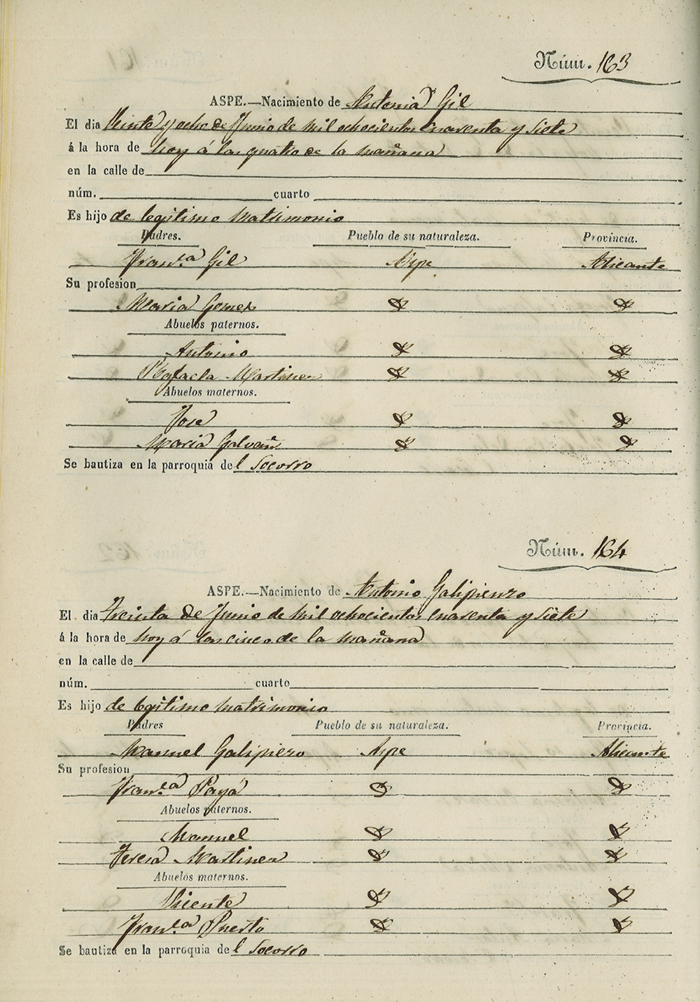 Núm. 163
ASPE.—Nacimiento de Antonia Gil
El dia Veinte y ocho de Junio de mil ochocientos cuarenta y siete
á la hora de hoy á las quatro de la mañana
en la calle de
núm. cuarto
Es hijo de legitimo matrimonio
Padres. Pueblo de su naturaleza. Provincia.
Fran.ca Gil Aspe Alicante
Su profesion
Maria Gomez
Abuelos paternos.
Antonio
Rafaela Martinez
Abuelos maternos.
Jose
Maria Galvañ
Se bautiza en la parroquia del Socorro
Núm. 164
ASPE.—Nacimiento de Antonio Galipienzo
El dia Treinta de Junio de mil ochocientos cuarenta y siete
á la hora de hoy á las cinco de la mañana
en la calle de
núm. cuarto
Es hijo de legitimo matrimonio
Padres Pueblo de su naturaleza. Provincia.
Manuel Galipiezo Aspe Alicante
Su profesion
Fran.ca Payá
Abuelos paternos.
Manuel
Teresa Martinez
Abuelos maternos.
Vicente
Fran.ca Puerto
Se bautiza en la parroquia del Socorro